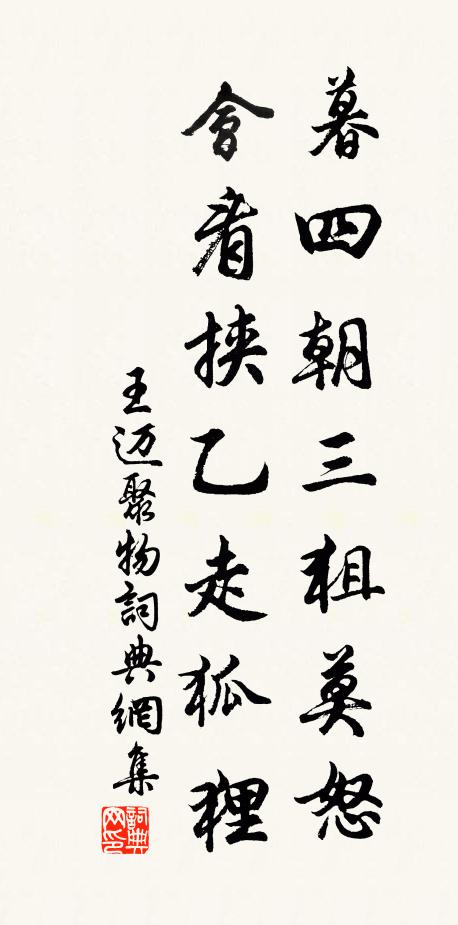 暮四朝三狙莫怒
會看挾乙走狐狸
王迈聚物詞典網集
詞典网印